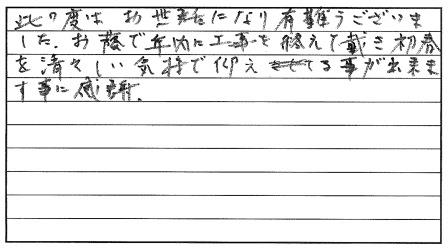 此の度は お世話になり有難うございま
した.お蔭で年内に工事を終えて戴き初春
を清々しい気持で仰える事が出来ま
す事に感謝.